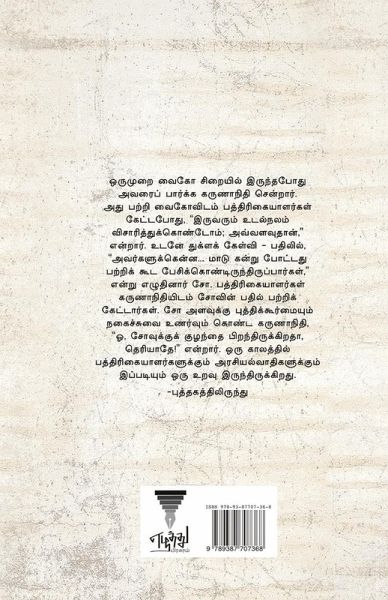 ஒருமுறை வைகோ சிறையில் இருந்தபோது
அவரைப் பார்க்க கருணாநிதி சென்றார்.
அது பற்றி வைகோவிடம் பத்திரிகையாளர்கள்
கேட்டபோது, "இருவரும் உடல்நலம்
விசாரித்துக்கொண்டோம்; அவ்வளவுதான்,"
என்றார். உடனே துக்ளக் கேள்வி - பதிலில்,
"அவர்களுக்கென்ன... மாடு கன்று போட்டது
பற்றிக் கூட பேசிக்கொண்டிருந்திருப்பார்கள்,"
என்று எழுதினார் சோ. பத்திரிகையாளர்கள்
கருணாநிதியிடம் சோவின் பதில் பற்றிக்
கேட்டார்கள். சோ அளவுக்கு புத்திக்கூர்மையும்
நகைச்சுவை உணர்வும் கொண்ட கருணாநிதி,
"ஓ, சோவுக்குக் குழந்தை பிறந்திருக்கிறதா,
தெரியாதே!" என்றார். ஒரு காலத்தில்
பத்திரிகையாளர்களுக்கும் அரசியல்வாதிகளுக்கும்
இப்படியும் ஒரு உறவு இருந்திருக்கிறது.
-புத்தகத்திலிருந்து
எழுத்து
பிரசுரம்
ISBN 978-93-87707-36-8
9 789387 707368